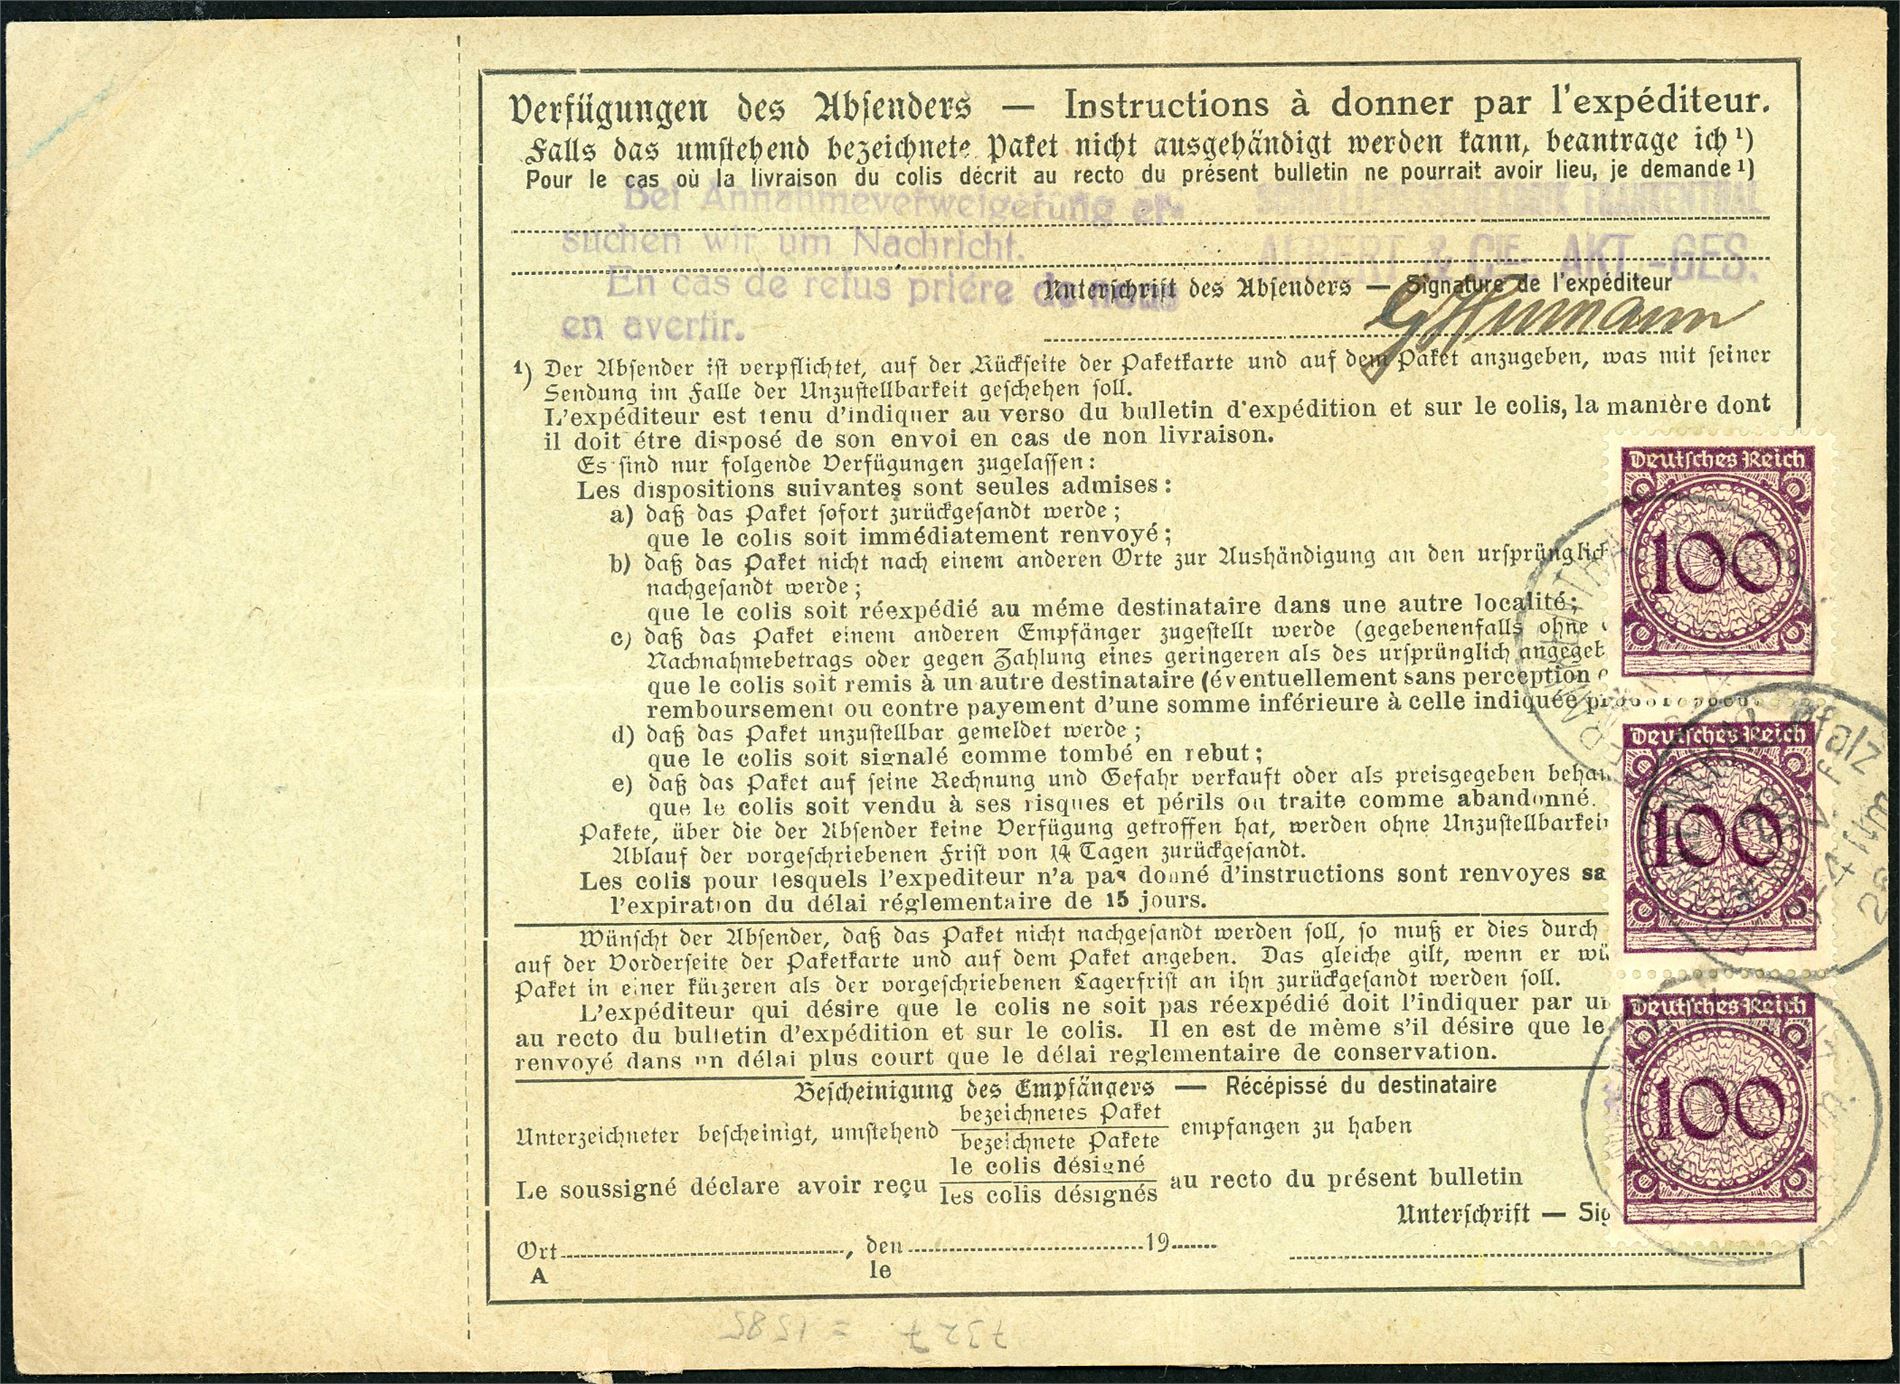 Verfügungen des Absenders — Instructions à donner par l'expéditeur.
Falls das umstehend bezeichnete Paket nicht ausgehändigt werden kann, beantrage ich ¹)
Pour le cas où la livraison du colis décrit au recto du présent bulletin ne pourrait avoir lieu, je demande ¹)
Bei Annahmeverweigerung er-
suchen wir um Nachricht.
En cas de refus prière de nous
en avertir.
SCHNELLPRESSENFABRIK FRANKENTHAL
ALBERT & CIE. AKT.-GES.
Unterschrift des Absenders — Signature de l'expéditeur
¹) Der Absender ist verpflichtet, auf der Rückseite der Paketkarte und auf dem Paket anzugeben, was mit seiner
Sendung im Falle der Unzustellbarkeit geschehen soll.
L'expéditeur est tenu d'indiquer au verso du bulletin d'expédition et sur le colis, la manière dont
il doit étre disposé de son envoi en cas de non livraison.
Es sind nur folgende Verfügungen zugelassen:
Les dispositions suivantes sont seules admises:
a) daß das Paket sofort zurückgesandt werde;
que le colis soit immédiatement renvoyé;
b) daß das Paket nicht nach einem anderen Orte zur Aushändigung an den ursprünglich
nachgesandt werde;
que le colis soit réexpédié au méme destinataire dans une autre localité;
c) daß das Paket einem anderen Empfänger zugestellt werde (gegebenenfalls ohne
Nachnahmebetrags oder gegen Zahlung eines geringeren als des ursprünglich angegeb
que le colis soit remis à un autre destinataire (éventuellement sans perception
remboursement ou contre payement d'une somme inférieure à celle indiquée
d) daß das Paket unzustellbar gemeldet werde;
que le colis soit signalé comme tombé en rebut;
e) daß das Paket auf seine Rechnung und Gefahr verkauft oder als preisgegeben behan
que le colis soit vendu à ses risques et périls ou traite comme abandonné.
Pakete, über die der Absender keine Verfügung getroffen hat, werden ohne Unzustellbarkei
Ablauf der vorgeschriebenen Frist von 14 Tagen zurückgesandt.
Les colis pour lesquels l'expediteur n'a pas donné d'instructions sont renvoyes sa
l'expiration du délai réglementaire de 15 jours.
Wünscht der Absender, daß das Paket nicht nachgesandt werden soll, so muß er dies durch
auf der Vorderseite der Paketkarte und auf dem Paket angeben. Das gleiche gilt, wenn er wü
Paket in einer kürzeren als der vorgeschriebenen Lagerfrist an ihn zurückgesandt werden soll.
L'expéditeur qui désire que le colis ne soit pas réexpédié doit l'indiquer par un
au recto du bulletin d'expédition et sur le colis. Il en est de mème s'il désire que le
renvoyé dans un délai plus court que le délai reglementaire de conservation.
Bescheinigung des Empfängers — Récépissé du destinataire
Unterzeichneter bescheinigt, umstehend bezeichnetes Paket
bezeichnete Pakete empfangen zu haben
Le soussigné déclare avoir reçu le colis désigné
les colis désignés au recto du présent bulletin
Unterschrift — Sig
Ort , den 19
A le
Deutsches Reich
100
Deutsches Reich
100
Deutsches Reich
100
Pfalz
7327 = 1585